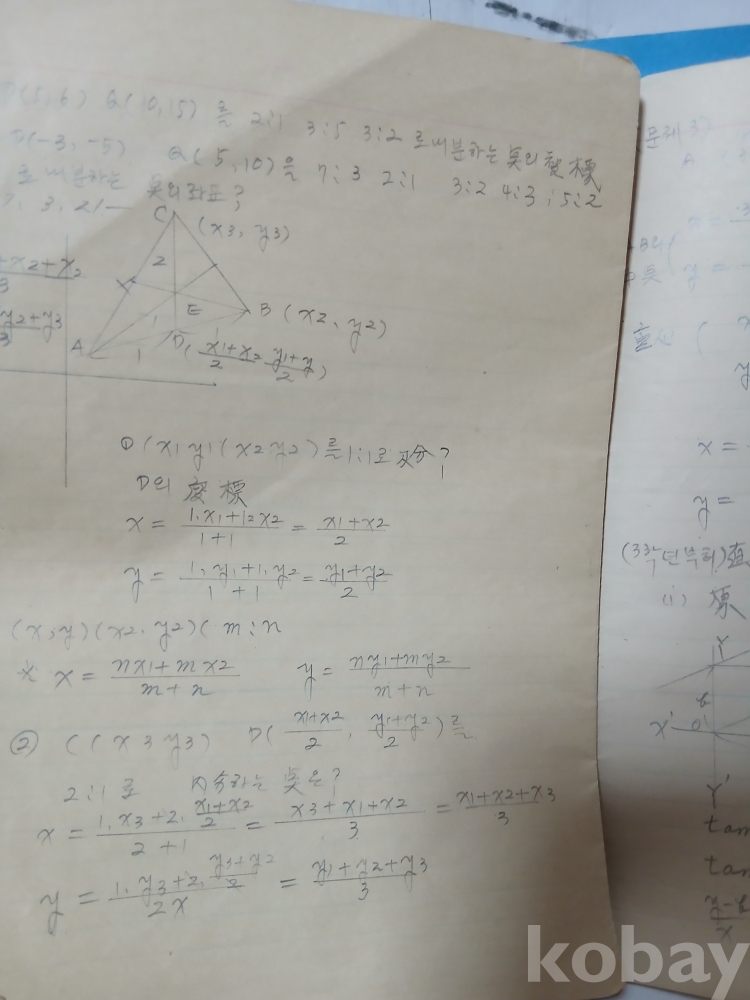 P(5,6) Q(10,15)을 2:1 3:5 3:2 로 내분하는 點의 座標
P(-3,-5) Q(5,10)을 7:3 2:1 3:2 4:3 :5:2
로 내분하는 點의 좌표?
C (x3, y3)
+x2+x2
3
y2+y3
3
2
E
B (x2, y2)
A
1
1
D(x1+x2/2 y1+y/2)
① (x1 y1 (x2 y2)를 1:1로 內分?
D의 座標
x = 1.x1+1.x2/1+1 = x1+x2/2
y = 1.y1+1.y2/1+1 = y1+y2/2
(x,y)(x2, y2)( m:n
※ x = nx1+mx2/m+n y = ny1+my2/m+n
② C(x3 y3) D(x1+x2/2, y1+y2/2)를
2:1로 內分하는 點은?
x = 1.x3+2.x1+x2/2/2+1 = x3+x1+x2/3 = x1+x2+x3/3
y = 1.y3+2.y3+y2/2/2x = y1+y2+y3/3
문제3)
A
y =
x =
y =
(3학년부터)
(i)
Y
X' O'
Y'
tan
tan
x
kobay